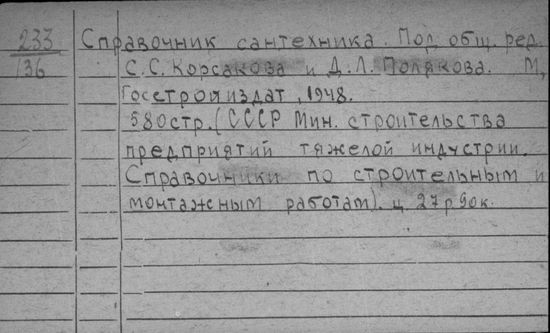 233 Справочник сантехника. Под общ. ред.
136 С.С. Корсакова и Д.Л. Полякова. М,
Госстройиздат, 1948.
580стр. (СССР Мин. строительства
предприятий тяжелой индустрии.
Справочники по строительным и
монтажным работам). ц. 27р90к.